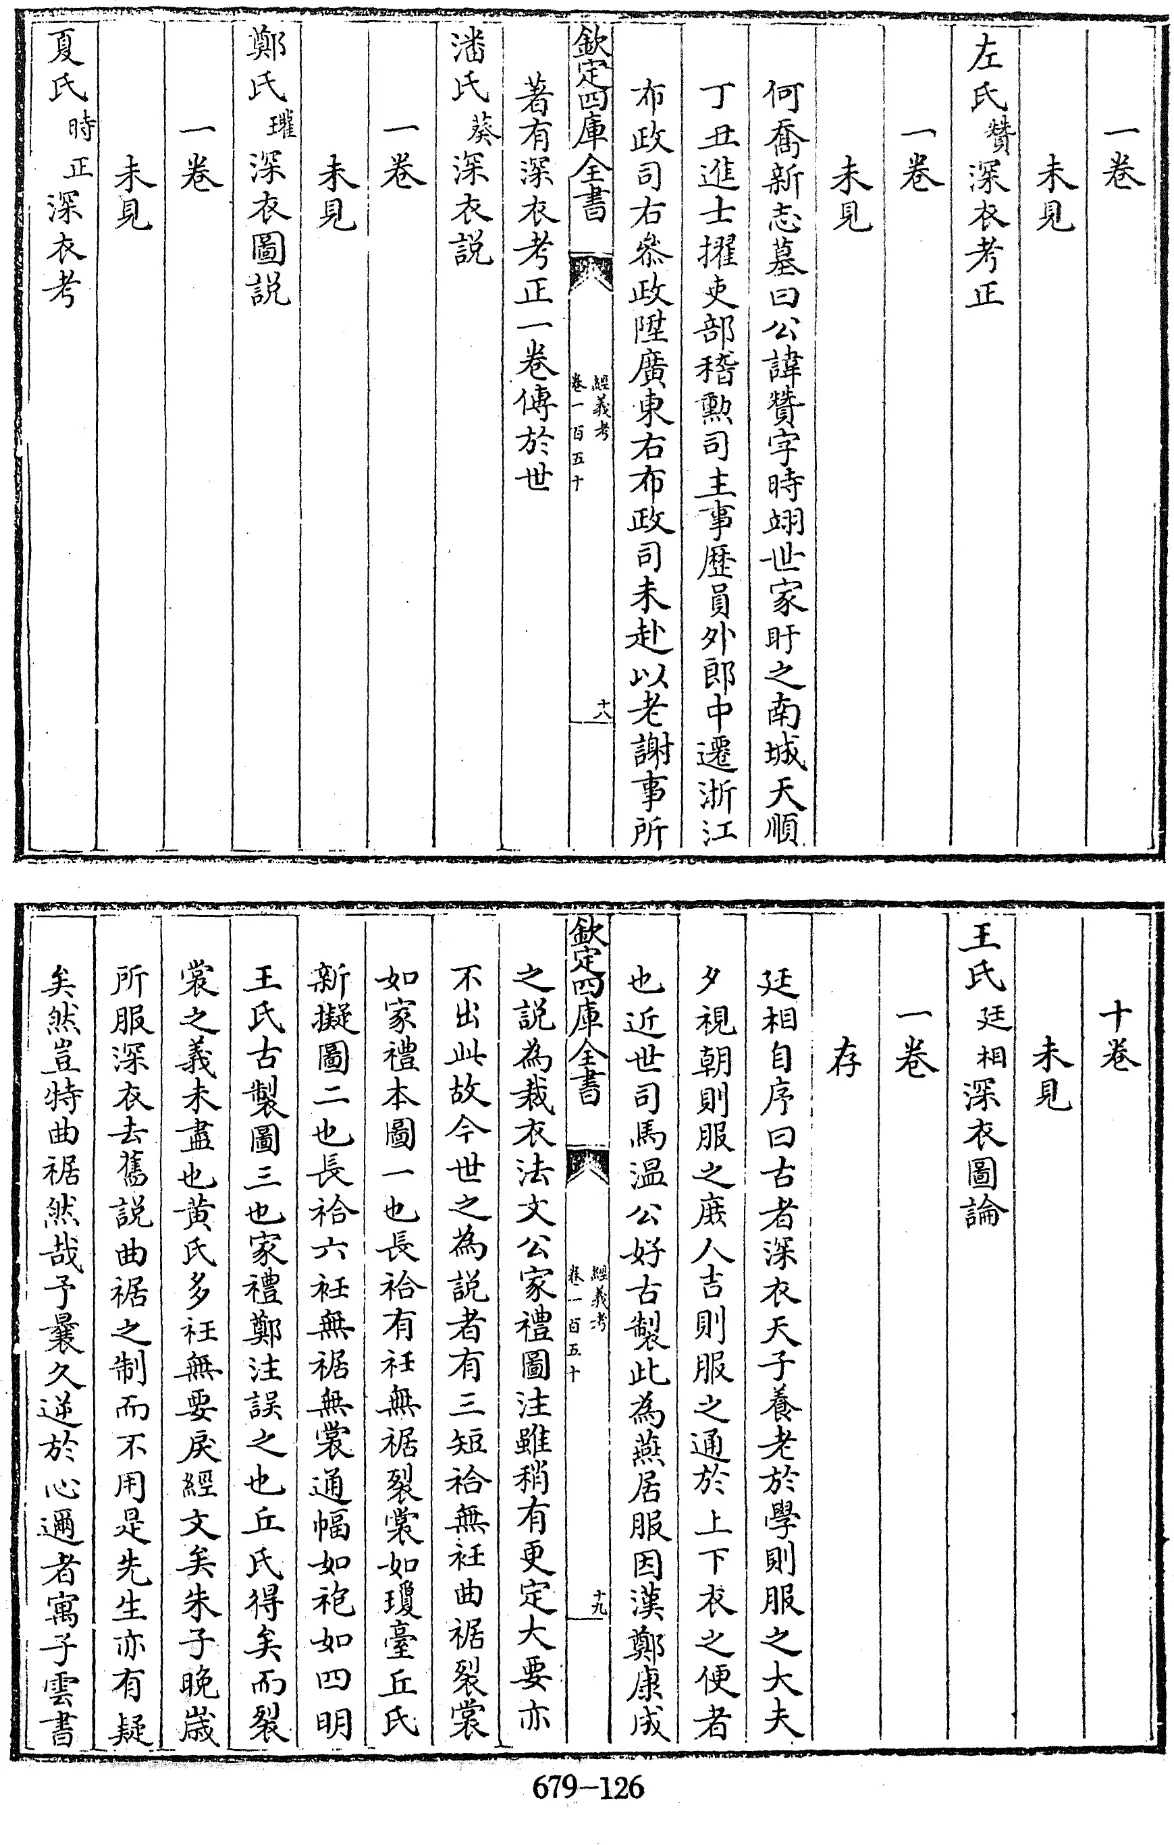 一卷
未見
左氏贊深衣考正
一卷
未見
何喬新志墓曰公諱贊字時翊世家盱之南城天順
丁丑進士擢吏部稽勲司主事歷員外郎中遷浙江
布政司右叅政陞廣東右布政司未赴以老謝事所
欽定四庫全書
經義考
卷一百五十
十八
著有深衣考正一卷傳於世
潘氏葵深衣説
一卷
未見
鄭氏瓘深衣圖説
一卷
未見
夏氏時正深衣考
十卷
未見
王氏廷相深衣圖論
一卷
存
廷相自序曰古者深衣天子養老於學則服之大夫
夕視朝則服之庻人吉則服之通於上下衣之便者
也近世司馬溫公好古製此為燕居服因漢鄭康成
欽定四庫全書
經義考
卷一百五十
十九
之説為裁衣法文公家禮圖注雖稍有更定大要亦
不出此故今世之為説者有三短袷無衽曲裾裂裳
如家禮本圖一也長袷有衽無裾裂裳如瓊臺丘氏
新擬圖二也長袷六衽無裾無裳通幅如袍如四明
王氏古製圖三也家禮鄭注誤之也丘氏得矣而裂
裳之義未盡也黄氏多衽無要戾經文矣朱子晚歲
所服深衣去舊説曲裾之制而不用是先生亦有疑
矣然豈特曲裾然哉予曩久逆於心邇者寓子雲書
679-126